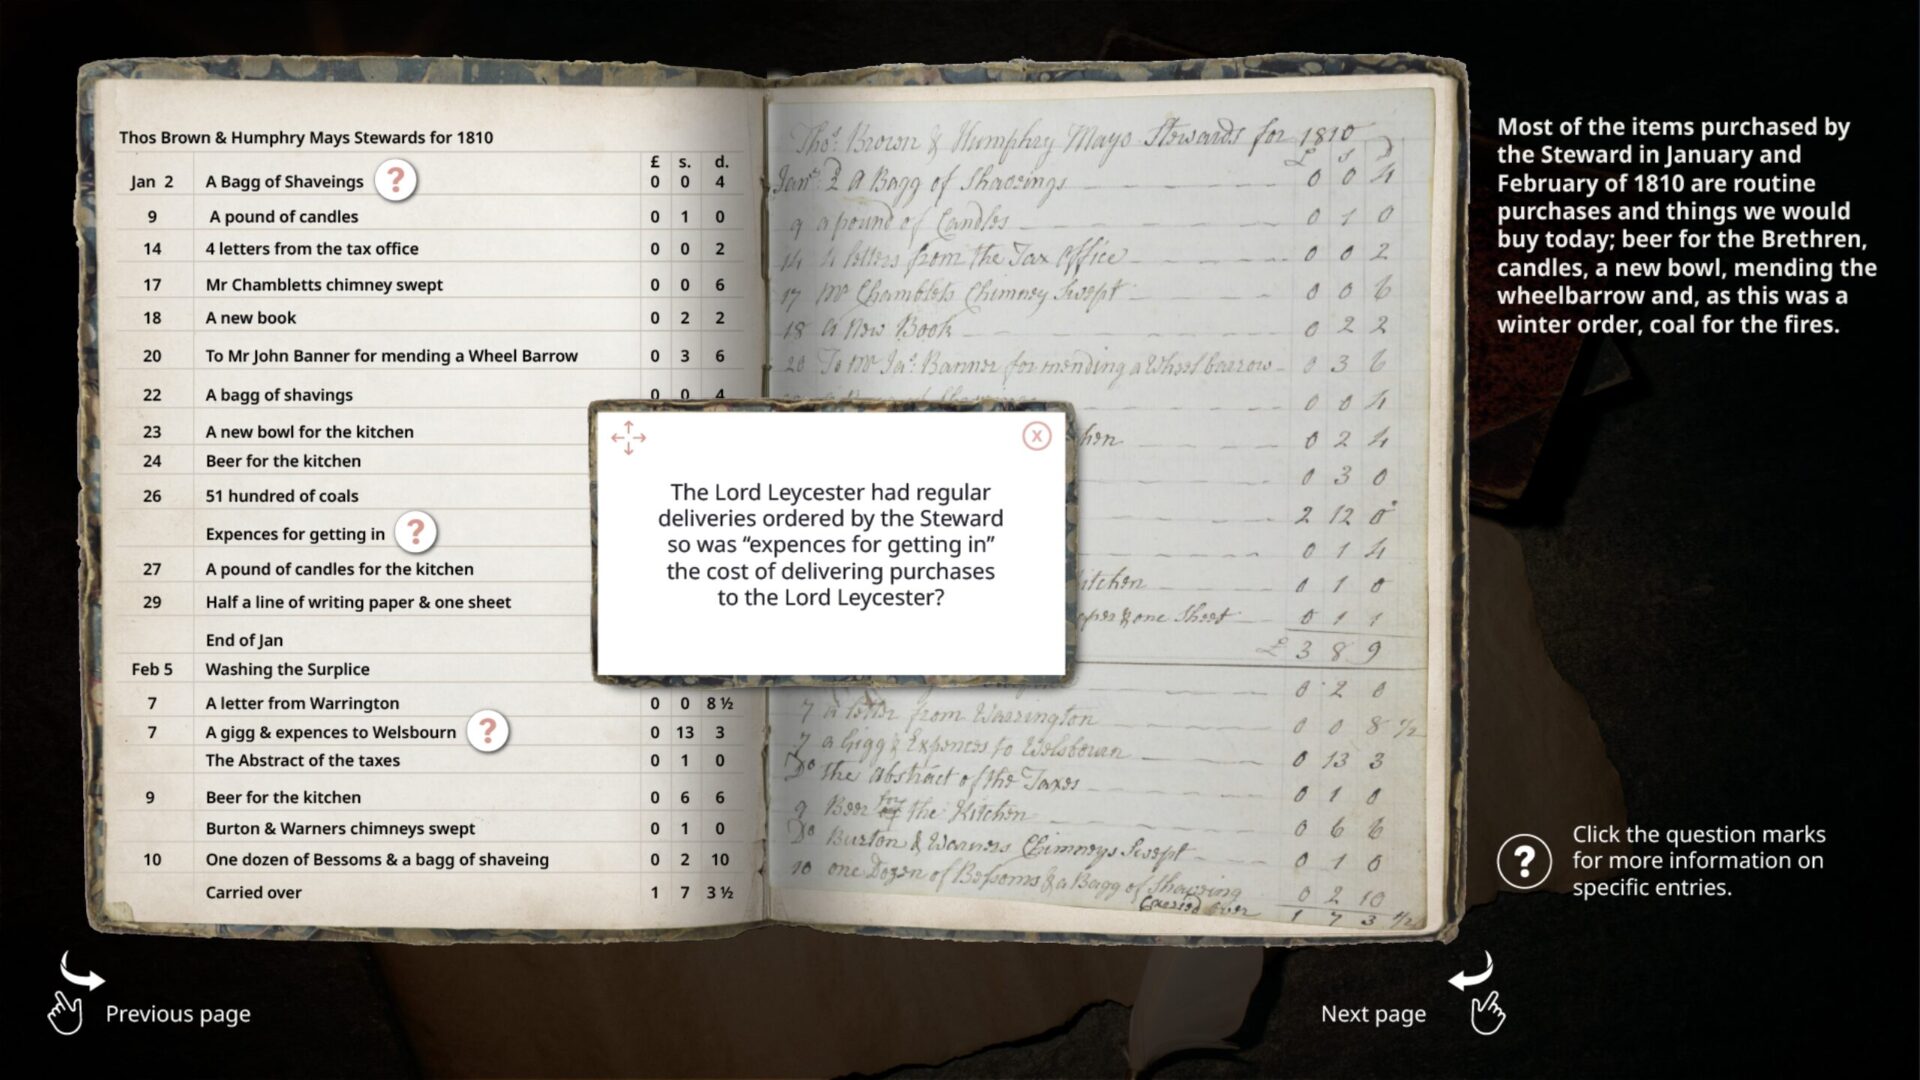 Thos Brown & Humphry Mays Stewards for 1810
£ s. d.
Jan 2 A Bagg of Shaveings ? 0 0 4
9 A pound of candles 0 1 0
14 4 letters from the tax office 0 0 2
17 Mr Chambletts chimney swept 0 0 6
18 A new book 0 2 2
20 To Mr John Banner for mending a Wheel Barrow 0 3 6
22 A bagg of shavings 0 0 4
23 A new bowl for the kitchen
24 Beer for the kitchen
26 51 hundred of coals
Expences for getting in ?
27 A pound of candles for the kitchen
29 Half a line of writing paper & one sheet
End of Jan
Feb 5 Washing the Surplice
7 A letter from Warrington 0 0 8 ½
7 A gigg & expences to Welsbourn ? 0 13 3
The Abstract of the taxes 0 1 0
9 Beer for the kitchen 0 6 6
Burton & Warners chimneys swept 0 1 0
10 One dozen of Bessoms & a bagg of shaveing 0 2 10
Carried over 1 7 3 ½
The Lord Leycester had regular
deliveries ordered by the Steward
so was “expences for getting in”
the cost of delivering purchases
to the Lord Leycester?
Thos. Brown & Humphry Mays Stewards for 1810
£ s D
Jany. 2 A Bagg of Shavings 0 0 4
9 a pound of Candles 0 1 0
14 4 letters from the Tax Office 0 0 2
17 Mr Chamblets Chimney Swept 0 0 6
18 a New Book 0 2 2
20 To Mr Jas. Banner for mending a Wheel barrow 0 3 6
0 0 4
hen 0 2 4
0 3 0
2 12 0
0 1 4
itchen 0 1 0
aper & one Sheet 0 1 1
£ 3 8 9
0 2 0
7 a letter from Warrington 0 0 8 1/2
7 a Gigg & Expences to Welsbourn 0 13 3
Do the abstract of the Taxes 0 1 0
9 Beer for the Kitchen 0 6 6
Do Burton & Warners Chimneys Swept 0 1 0
10 one Dozen of Bessoms & a Bagg of Shaveing 0 2 10
Carried over 1 7 3 1/2
Most of the items purchased by
the Steward in January and
February of 1810 are routine
purchases and things we would
buy today; beer for the Brethren,
candles, a new bowl, mending the
wheelbarrow and, as this was a
winter order, coal for the fires.
? Click the question marks
for more information on
specific entries.
Previous page
Next page